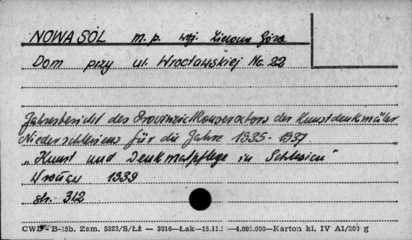 NOWA SÓL m.p. woj. Zielona Góra
Dom przy ul. Wrocławskiej Nr. 22
Jahresbericht des Provinzialkonservators der Kunstdenkmäler
Niederschlesiens für die Jahre 1935-1937
"Kunst und Denkmalpflege in Schlesien"
Wrocław 1939
str. 312
CWD - B-15b. Zam. 5823/S/Łź - 3016-Łak-15.11. -4.000.000-Karton kl. IV A1/200 g